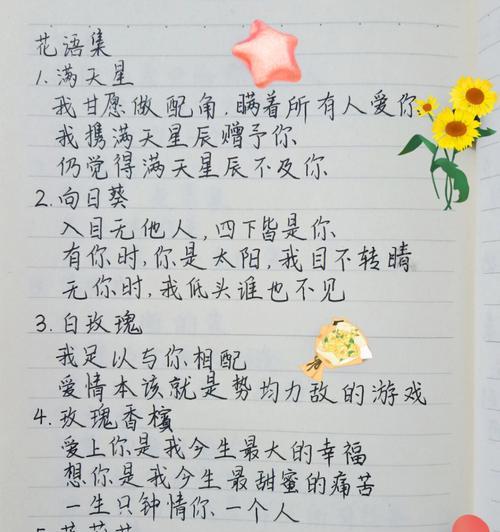 花语集
1.满天星
我甘愿做配角,瞒着所有人爱你
我携满天星辰赠予你
仍觉得满天星辰不及你
2.向日葵
入目无他人,四下皆是你
有你时,你是太阳,我目不转睛
无你时,我低头谁也不见
3.白玫瑰
我足以与你相配
爱情本该就是势均力敌的游戏
4.玫瑰香槟
爱上你是我今生最大的幸福
想你是我今生最甜蜜的痛苦
一生只钟情你一个人